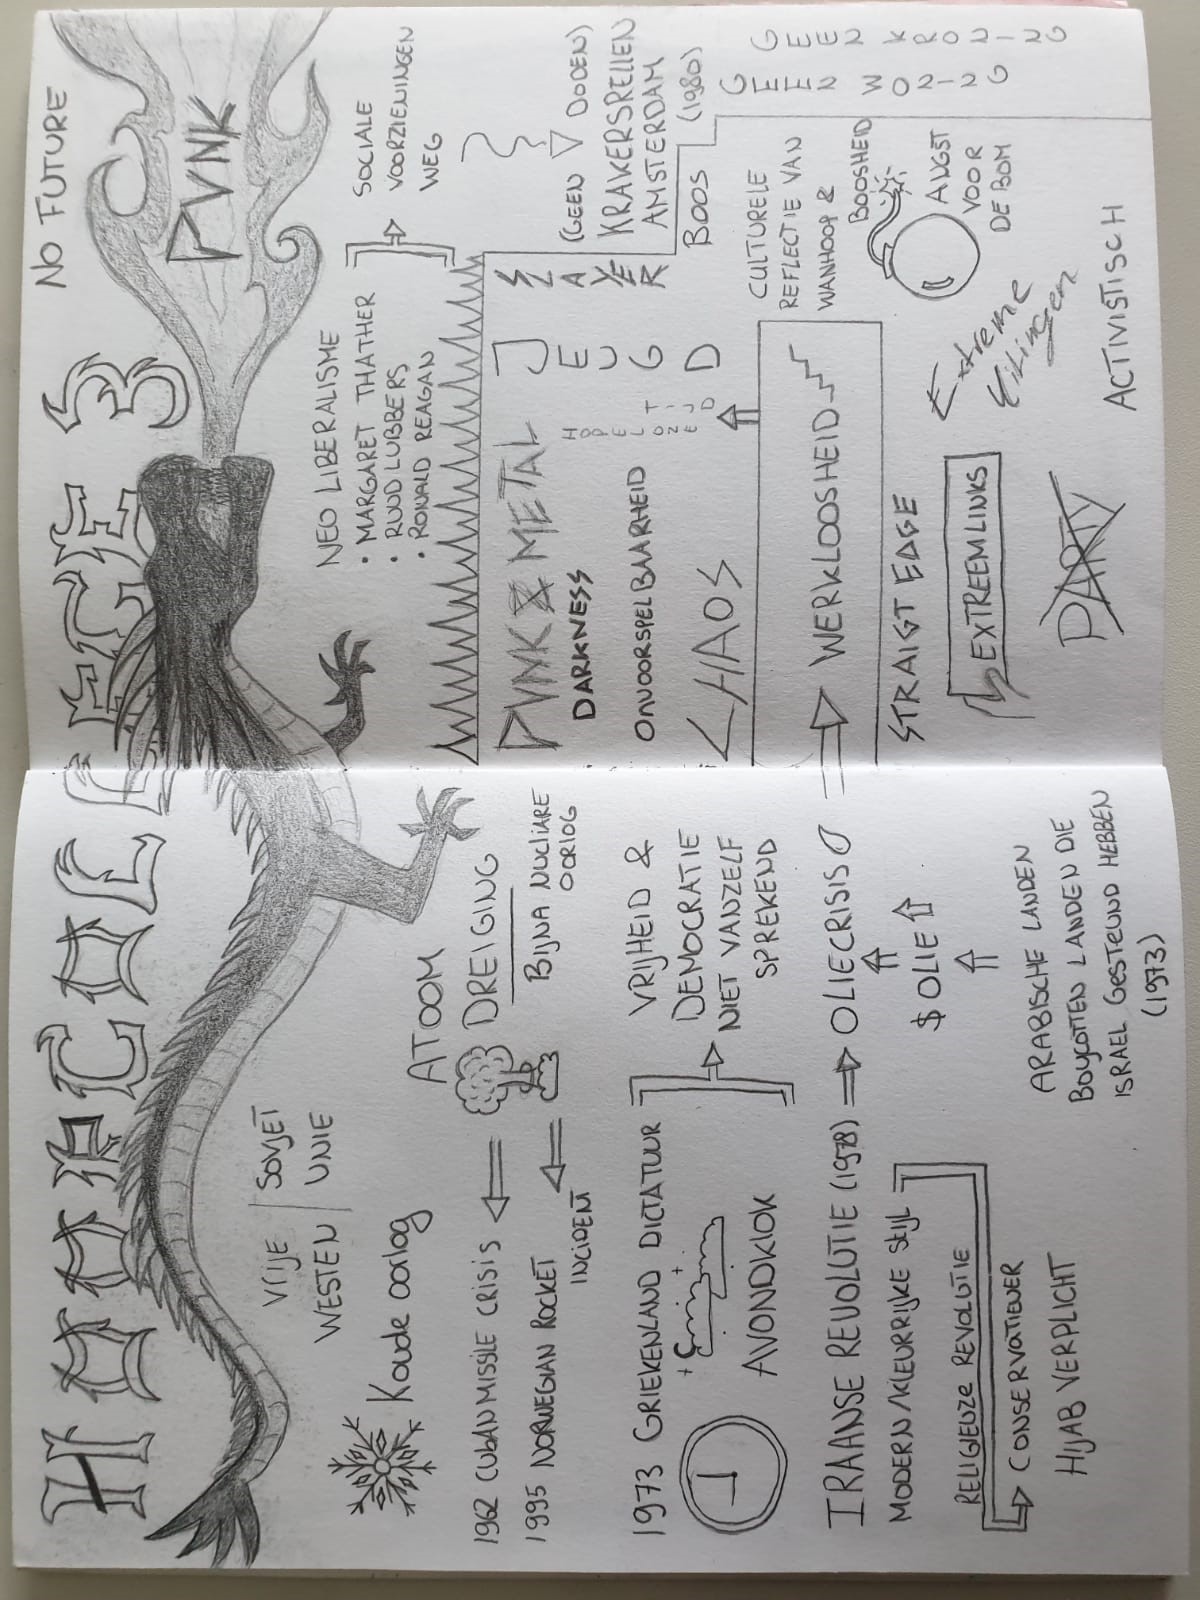 HOORCOLLEGE 3
VRIJE WESTEN / SOVJET UNIE
Koude oorlog
ATOOM
DREIGING
BIJNA NUCLIÄRE
OORLOG
1962 CUBAN MISSILE CRISIS
1995 NORWEGIAN ROCKET
INCIDENT
1973 GRIEKENLAND DICTATUUR
AVONDKLOK
VRIJHEID &
DEMOCRATIE
NIET VANZELF
SPREKEND
IRAANSE REVOLUTIE (1978)
OLIECRISIS
MODERN/KLEURRIJKE STIJL
$ OLIE
RELIGIEUZE REVOLUTIE
CONSERVATIEVER
HIJAB VERPLICHT
ARABISCHE LANDEN
BOYCOTTEN LANDEN DIE
ISRAEL GESTEUND HEBBEN
(1973)
NO FUTURE
PVNK
NEO LIBERALISME
• MARGARET THATHER
• RUUD LUBBERS
• RONALD REAGAN
SOCIALE
VOORZIENINGEN
WEG
PVNK & METAL
DARKNESS
ONVOORSPELBAARHEID
CHAOS
JEUGD
SLAYER
(GEEN DODEN)
KRAKERSRELLEN
AMSTERDAM
BOOS (1980)
GEEN WONING
GEEN KRONING
WERKLOOSHEID
CULTURELE
REFLECTIE VAN
WANHOOP &
BOOSHEID
ANGST
VOOR
DE BOM
STRAIGT EDGE
EXTREEMLINKS
PARTY
ACTIVISTISCH